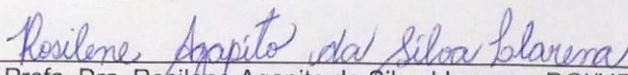 Rosilene Agapito da Silva Llarena
Profa. Dra. Rosilene Agapito da Silva Llarena